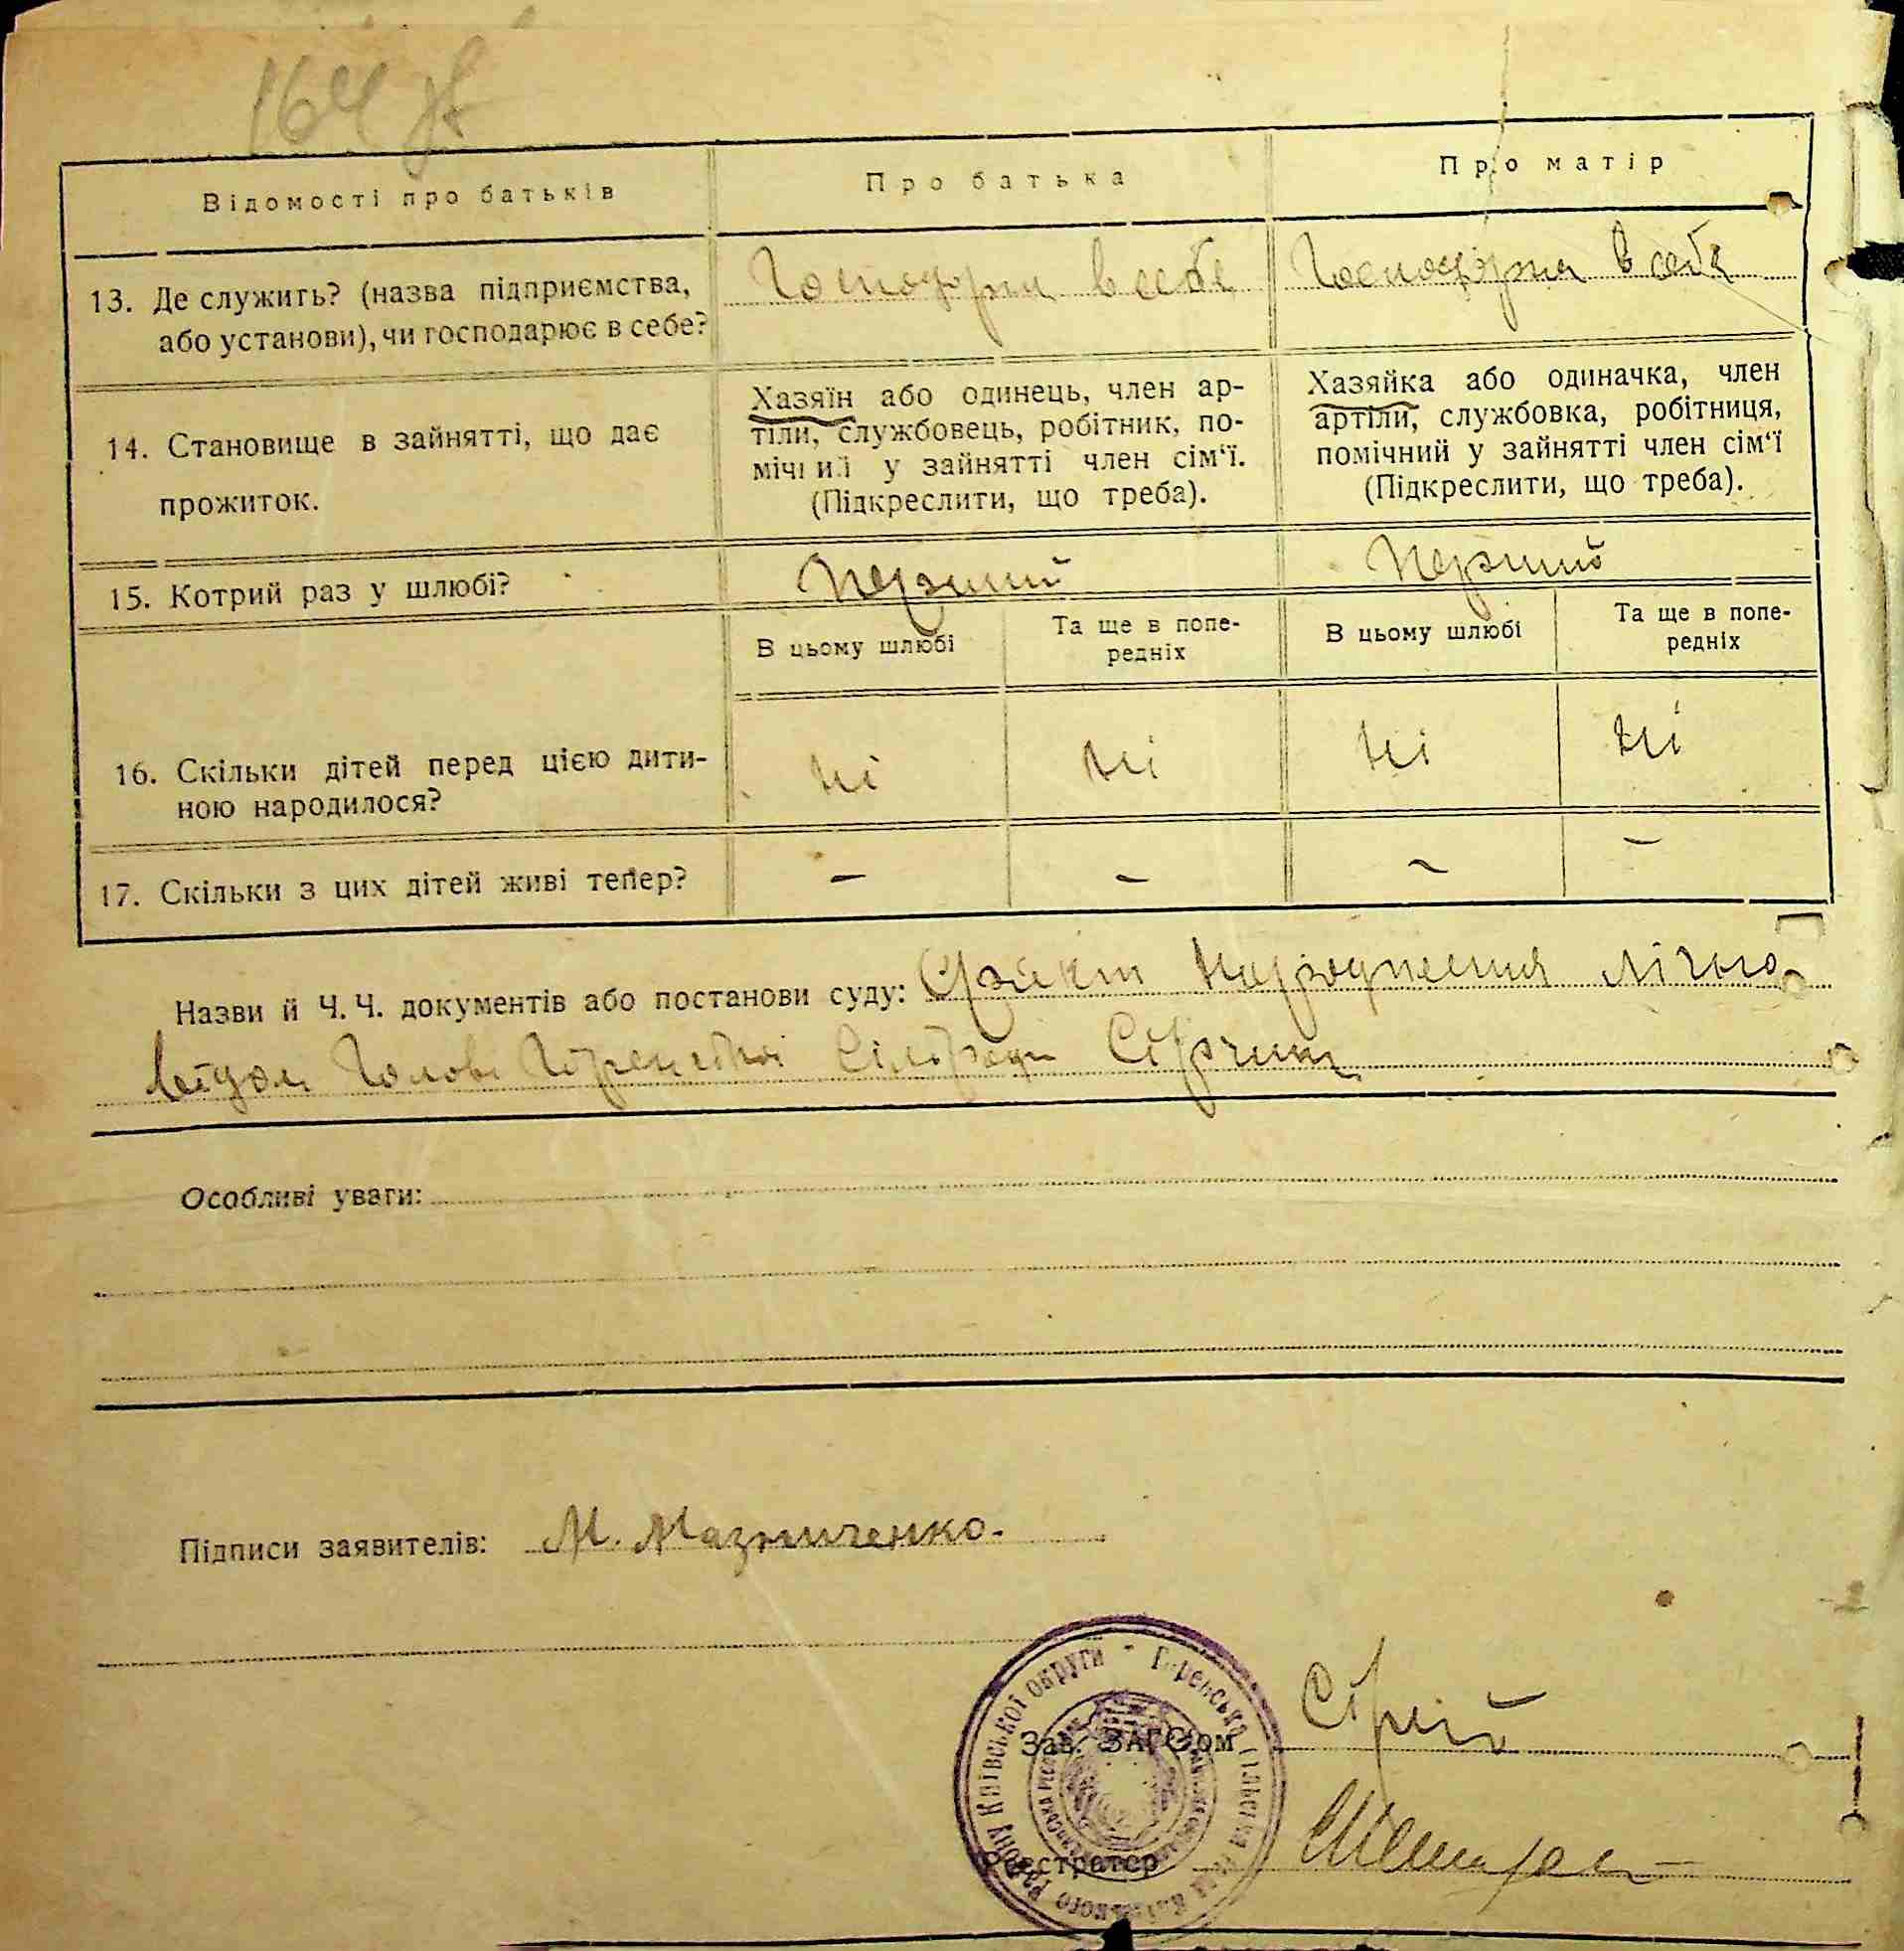 164
Відомості про батьків
Про батька
Про матір
13. Де служить? (назва підприємства,
або установи), чи господарює в себе?
в себе
в себе
14. Становище в зайнятті, що дає
прожиток.
Хазяїн або одинець, член ар-
тіли, службовець, робітник, по-
мічний у зайнятті член сім'ї.
(Підкреслити, що треба).
Хазяйка або одиначка, член
артіли, службовка, робітниця,
помічний у зайнятті член сім'ї
(Підкреслити, що треба).
15. Котрий раз у шлюбі?
Перший
Перший
В цьому шлюбі
Та ще в попе-
редніх
В цьому шлюбі
Та ще в попе-
редніх
16. Скільки дітей перед цією дити-
ною народилося?
Ні
Ні
Ні
Ні
17. Скільки з цих дітей живі тепер?
–
–
–
–
Назви й Ч. Ч. документів або постанови суду: Факт народження лічно
Голові Сільради
Особливі уваги:
Підписи заявителів: М. Мазниченко.
Зав. ЗАГСом
Реєстратор
району Київської округи